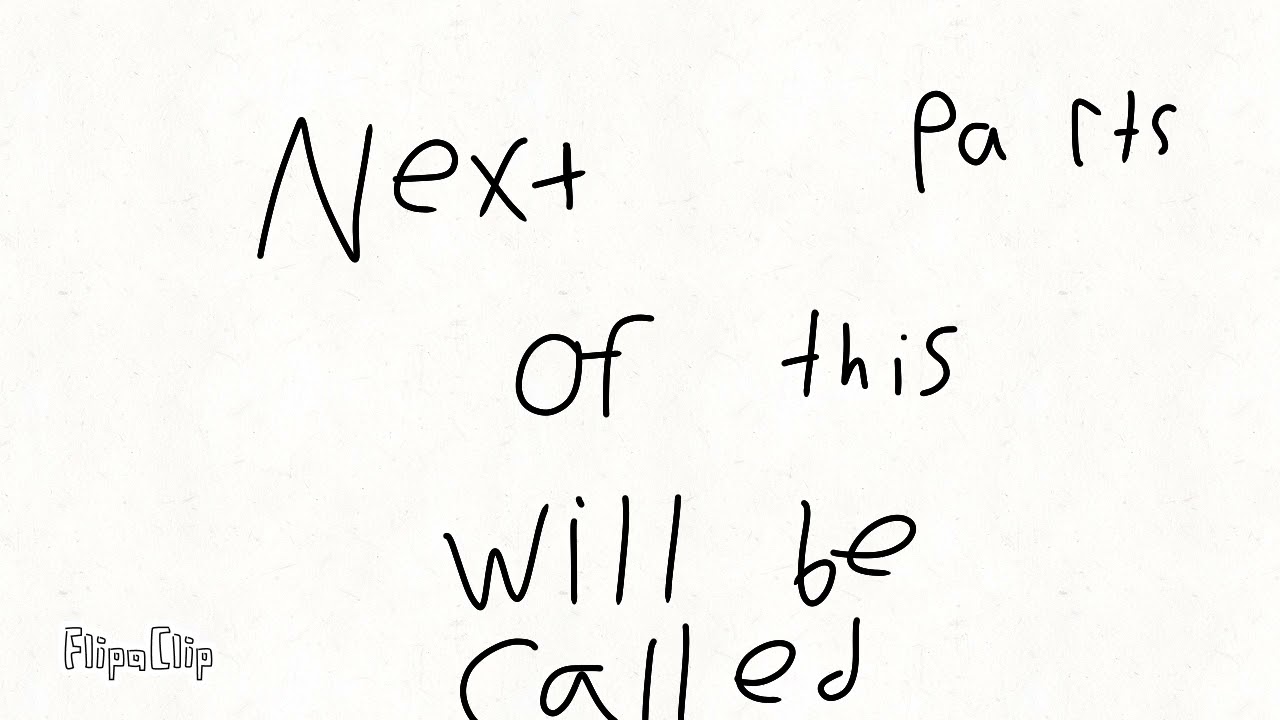 Next parts
of this
will be
called
FlipaClip